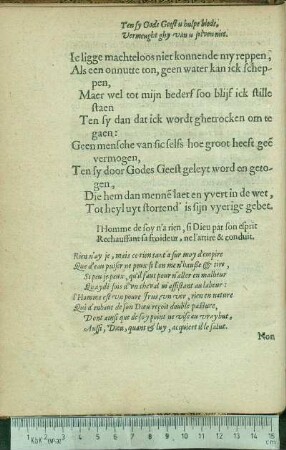 Ten sy Gods Geest u hulpe biedt,
Vermeught ghy van u selven niet.
Ic ligge machteloos niet konnende my reppen,
Als een onnutte ton, geen water kan ick schep-
pen,
Maer wel tot mijn bederf soo blijf ick stille
staen
Ten sy dan dat ick wordt ghetrocken om te
gaen:
Geen mensche van sic selfs hoe groot heeft geē
vermogen,
Ten sy door Godes Geest geleyt word en geto-
gen,
Die hem dan mennē laet en yvert in de wet,
Tot heyl uyt stortend' is sijn vyerige gebet.
l'Homme de soy n'a rien, si Dieu par son esprit
Rechauffant sa froideur, ne l'attire & conduit.
Rien n'ay je, mais ce tien tant a sur moy d'empire
Que d'eau puiser ne peux si l'on n'en hausse & tire,
Si peu je peux, qu'il faut pour n'aller en malheur
Qu'aydé sois d'un cheval m'assistant au labeur:
l'Homme est un pauvre
Qui d'enhant de son Dieu reçoit double pasture,
Dont ainsi que de soy point ne vise au vray but,
Aussi, Dieu, quant & luy, acquiert il le salut.
Mon
1 2 3 4 5 6 7 8 9 10 11 12 13 14 15
cm